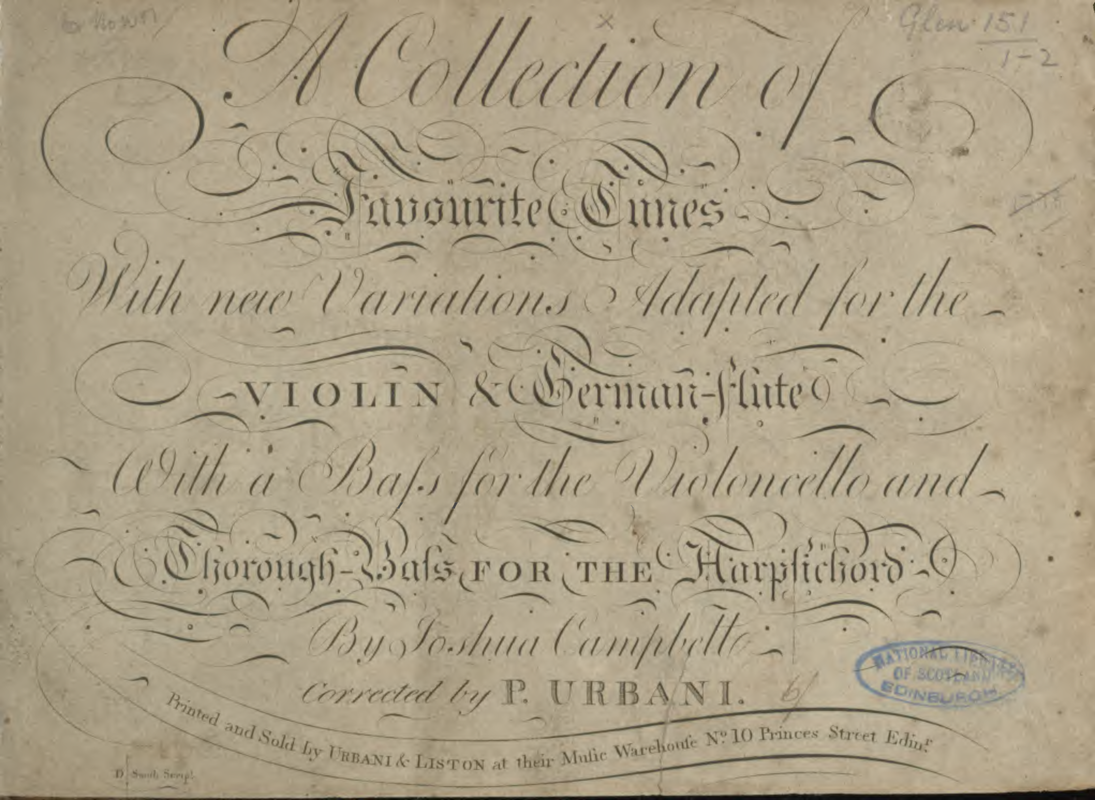 Glen 151
1-2
A Collection of
Favourite Tunes
With new Variations Adapted for the
VIOLIN & German-flute
With a Baſs for the Violoncello and
Thorough-Baſs FOR THE Harpſichord
By Joshua Campbell
Corrected by P. URBANI. 6/
NATIONAL LIBRARY
OF SCOTLAND
EDINBURGH
Printed and Sold by URBANI & LISTON at their Muſic Warehouſe No. 10 Princes Street Edinr.